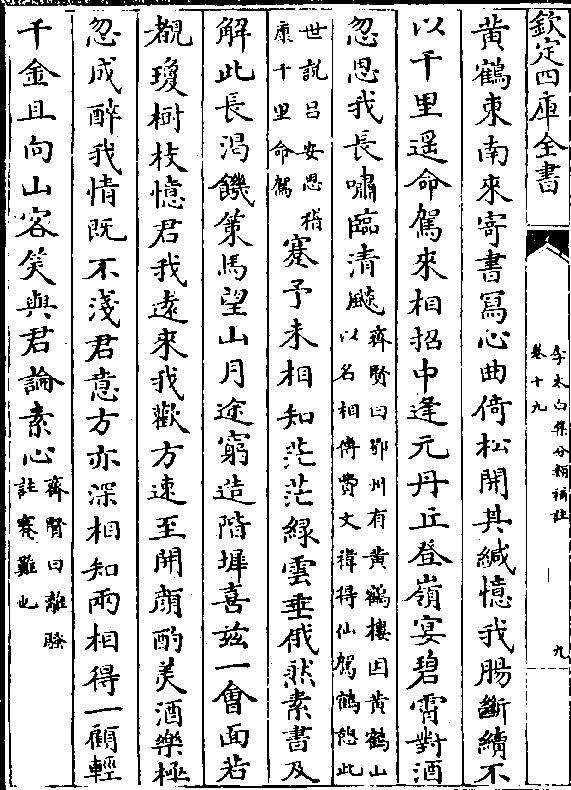 欽定四庫全書
李太白集分類補註
卷十九
九
黄鶴東南來寄書寫心曲倚松開其緘憶我腸斷續不
以千里遥命駕來相招中逢元丹丘登嶺宴碧霄對酒
忽思我長嘯臨清飈
齊賢曰鄂州有黄鶴樓因黄鶴山
以名相傳費文禕得仙駕鶴憩此
世説吕安思嵇
康千里命駕
蹇予未相知茫茫緑雲垂俄然素書及
解此長渇饑策馬望山月途窮造階墀喜兹一會面若
覩瓊樹枝憶君我遠來我歡方速至開顔酌美酒樂極
忽成醉我情既不淺君意方亦深相知兩相得一顧輕
千金且向山客笑與君論素心
齊賢曰離騷
註蹇難也